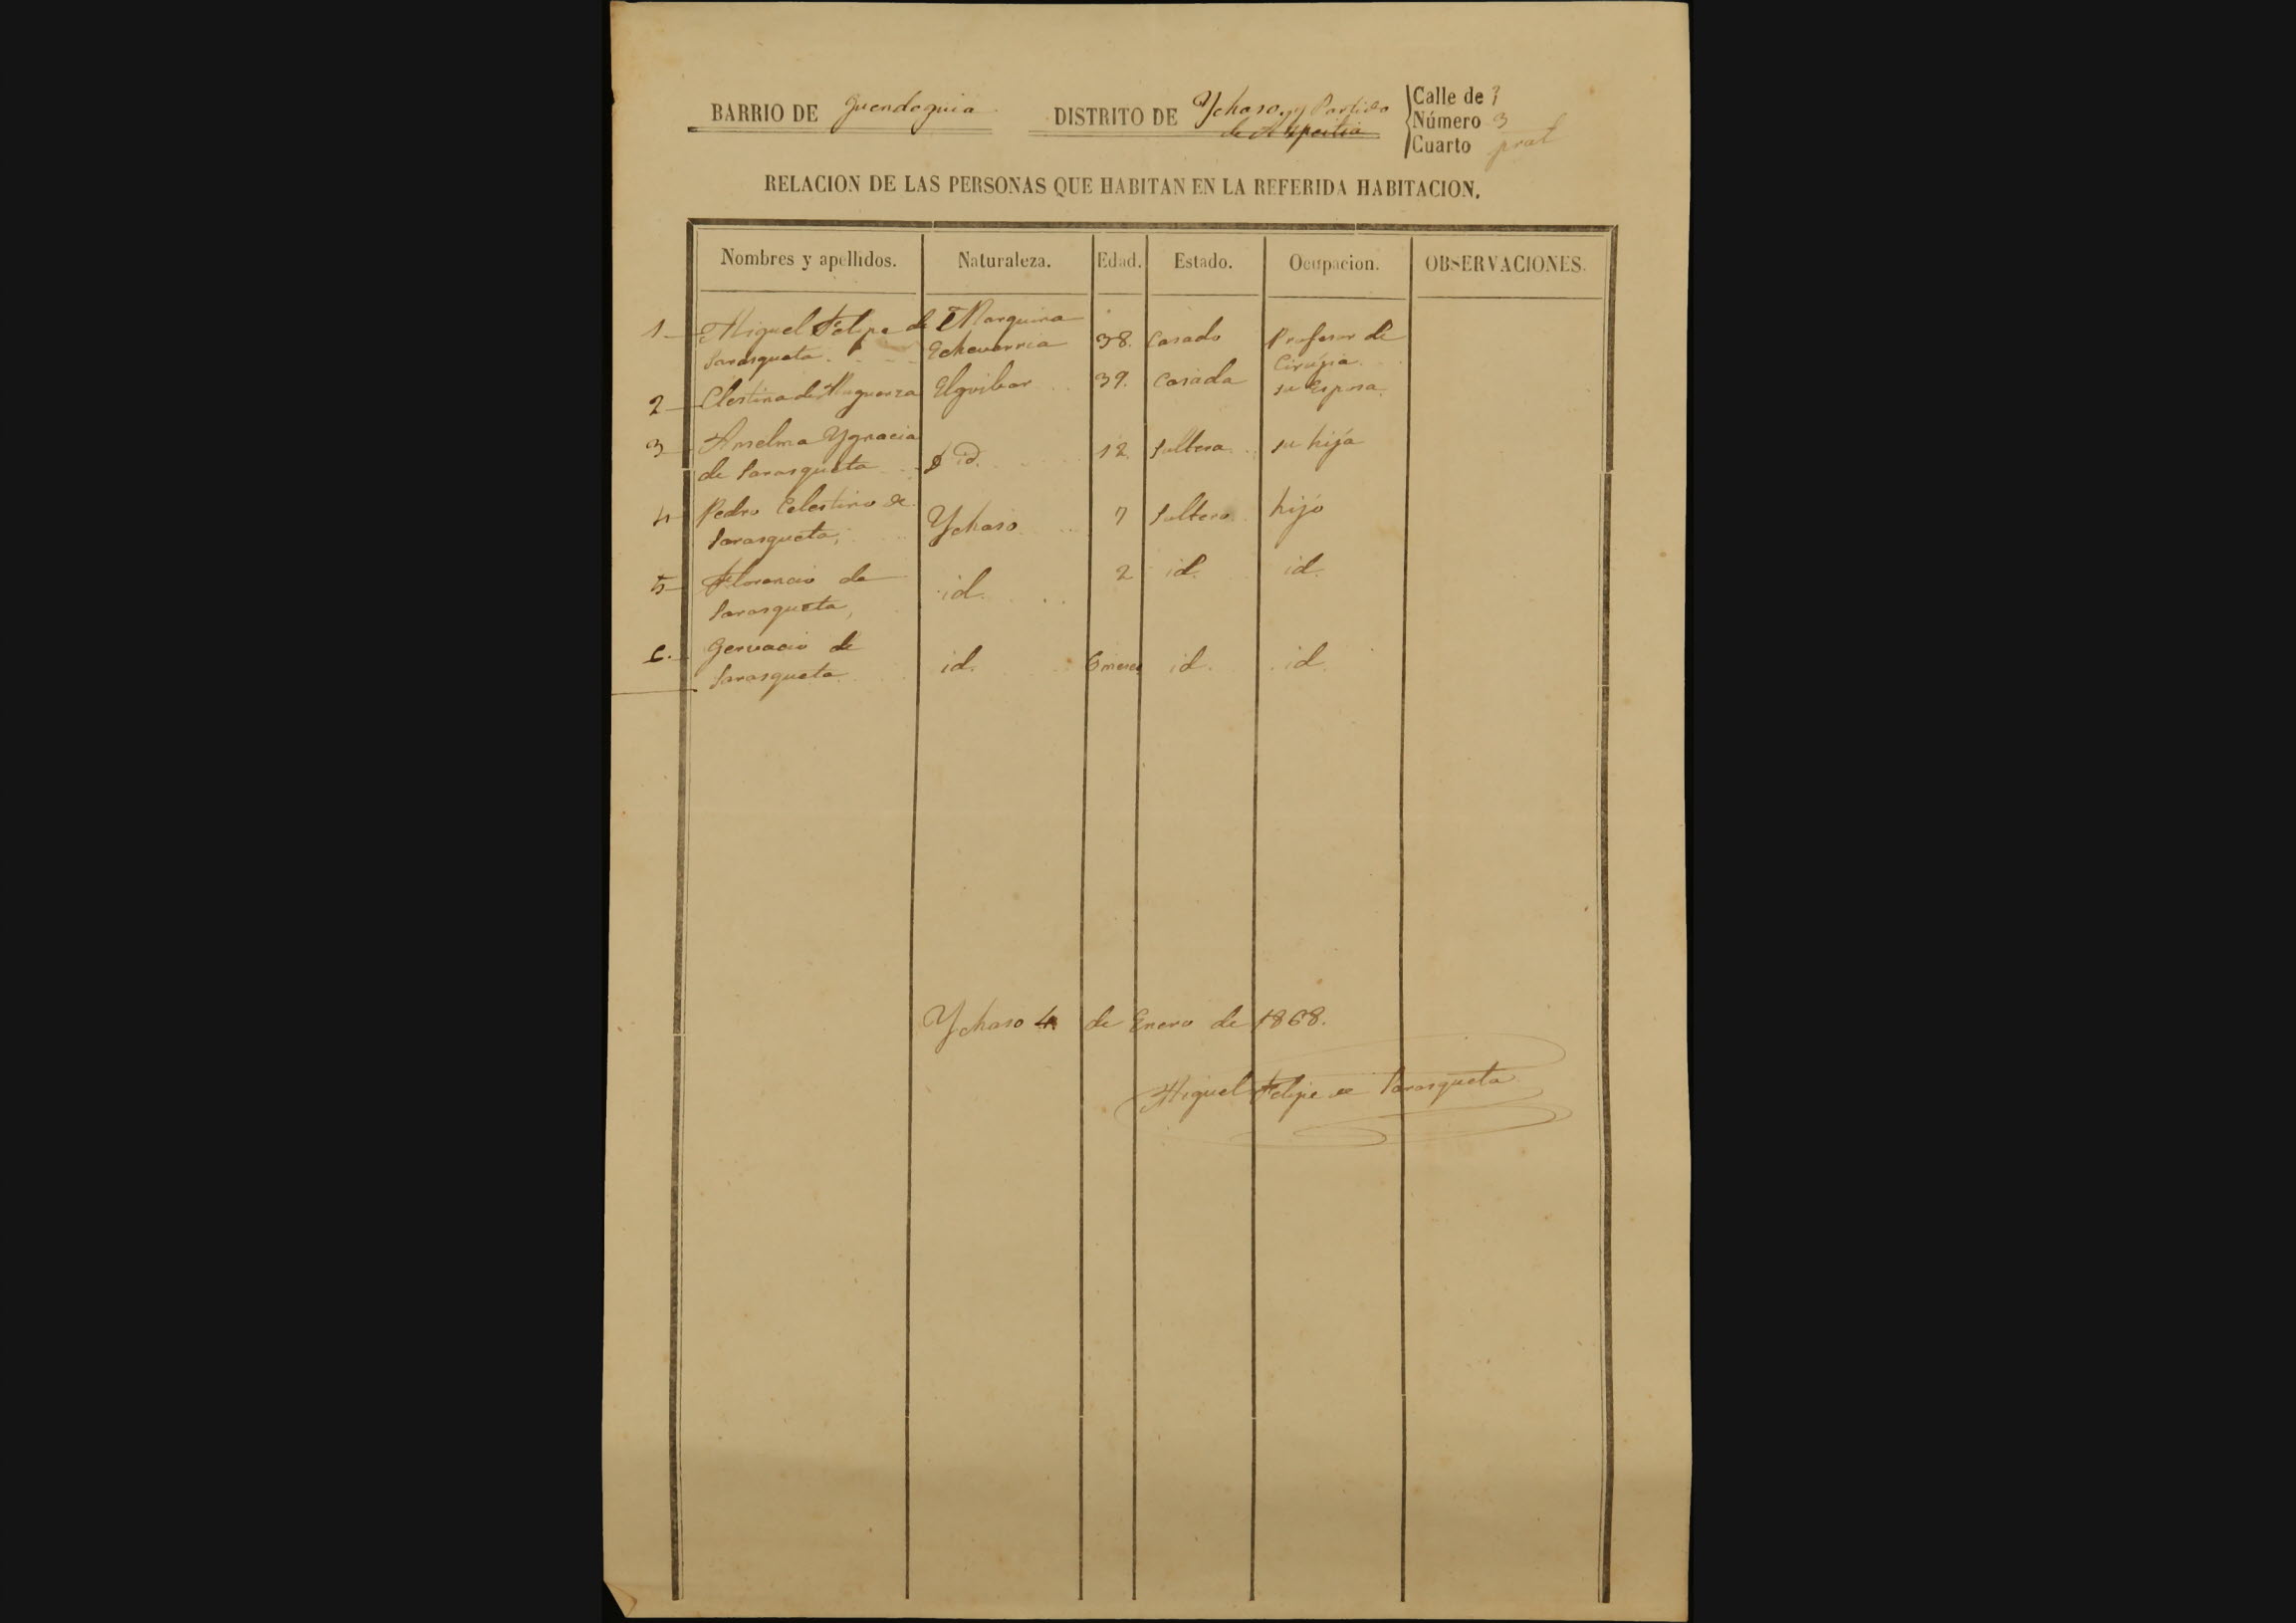 BARRIO DE Guendeguia DISTRITO DE Ychaso, y Partido Calle de
de Aspeitia Número 3
Cuarto pral
RELACION DE LAS PERSONAS QUE HABITAN EN LA REFERIDA HABITACION.
Nombres y apellidos. Naturaleza. Edad. Estado. Ocupacion. OBSERVACIONES.
1 Miguel Felipe de Marquina 38. Casado Profesor de
Sarasqueta. Echevarria Cirúgia
2 Clestina de Muguerza Elgoibar 39. Casada su Esposa.
3 Anselma Ygnacia id. 12. Soltera su hija
de Sarasqueta
4 Pedro Celestino de Ychaso 7 Soltero hijo
Sarasqueta,
5 Florencio de id. 2 id. id.
Sarasqueta,
6. Gervacio de id. 6 meses id. id.
Sarasqueta
Ychaso 4 de Enero de 1868.
Miguel Felipe de Sarasqueta